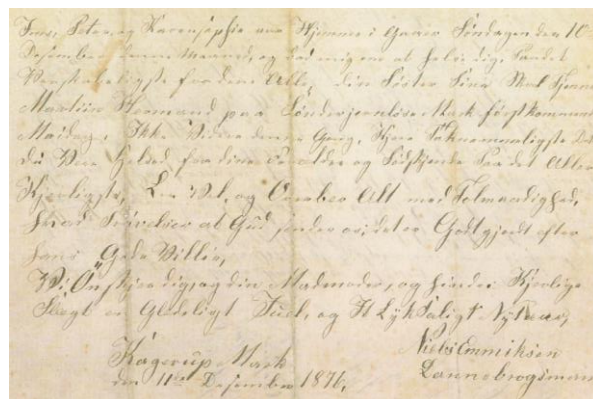 Jens, Peter, og Karensophie var Hjemme i Gaar Söndagen den 10
Desember denne Maaned, og bad mig om at helse dig, Samt
Venskabeligste fra dem Alle, din Söster Sina Skal tjene
Martin Strömand paa Sönderjernlöse Mark förstkommende
Maidag, Ikke Videre denne Gang, Kjære
du Være helset fra dine Forældre og Södskjende Paa det Aller
Kjerligste, Lev Vel, og Overbær Alt med Tolmodighed,
hvad Prövelser at Gud sender os, det er Godtgjordt efter
hans Gode Villie,
Vi Önskjer dig, og din Madmoder, og hendes Kjerlige
Slægt en Gledeligt Juel, og Et Lyksaligt Nytaar,
Kagerup Mark
den 11te Desember 1876,
Niels Emmiksen
Dannebrogsmand